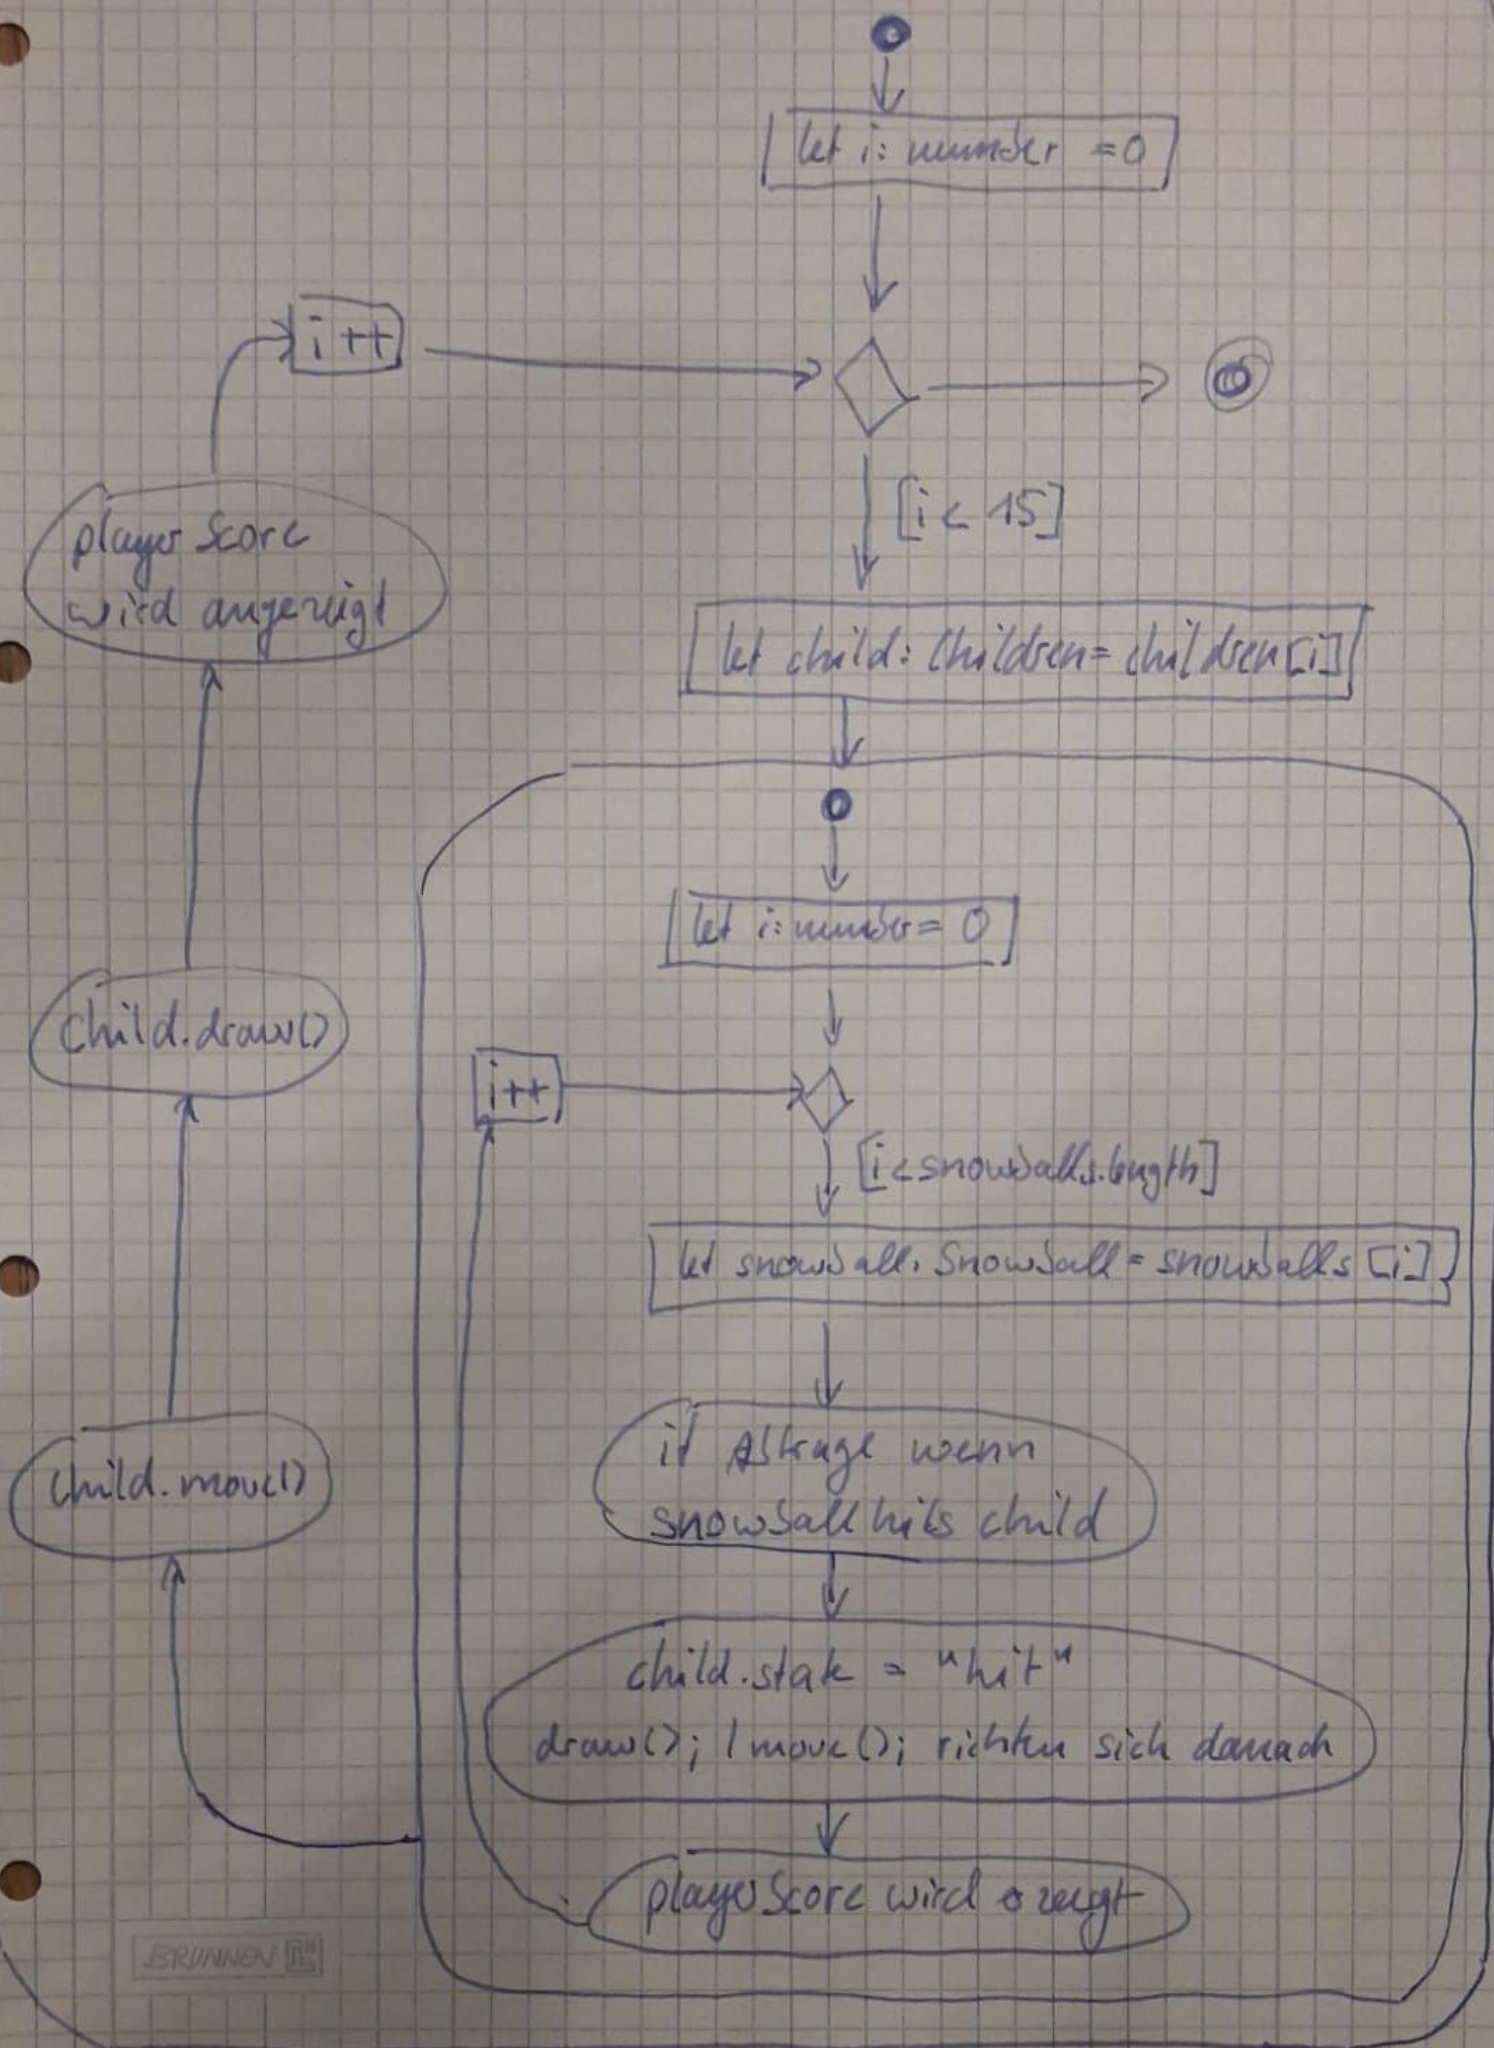 let i: number = 0
i++
[i < 15]
player Score
wird angezeigt
let child: Children = children[i]
let i: number = 0
child.draw()
i++
[i < snowballs.length]
let snowball: Snowball = snowballs[i]
if Abfrage wenn
snowball hits child
child.move()
child.state = "hit"
draw(); / move(); richten sich danach
playerScore wird erzeugt
BRUNNEN